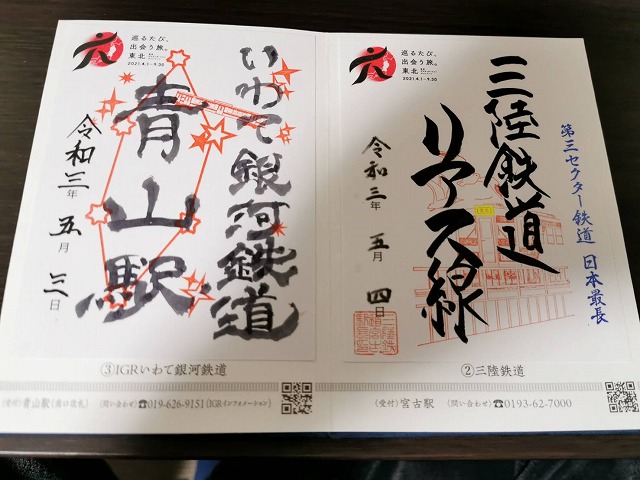 巡るたび、
出会う旅。
東北
2021.4.1-9.30
いわて銀河鉄道
青山駅
令和三年 五月 三日
③IGRいわて銀河鉄道
(受付) 青山駅(南口改札) (問い合わせ) ☎019-626-9151(IGRインフォメーション)
巡るたび、
出会う旅。
東北
2021.4.1-9.30
三陸鉄道
リアス線
第三セクター鉄道 日本最長
令和三年 五月 四日
②三陸鉄道
(受付) 宮古駅 (問い合わせ) ☎0193-62-7000